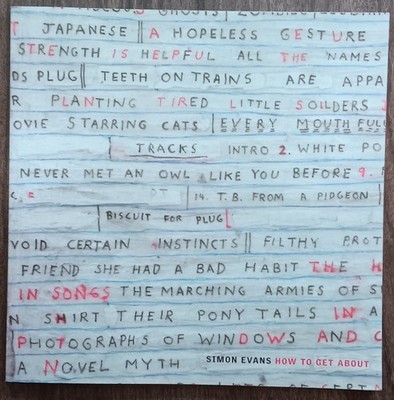 JAPANESE || A HOPELESS GESTURE
STRENGTH IS HELPFUL ALL THE NAMES
DS PLUG || TEETH ON TRAINS ARE APPA
R PLANTING TIRED LITTLE SOILDERS
OVIE STARRING CATS | EVERY MOUTH FULL
TRACKS INTRO 2. WHITE PO
NEVER MET AN OWL LIKE YOU BEFORE 9.
14. T.B. FROM A PIDGEON
BISCUIT FOR PLUG
VOID CERTAIN INSTINCTS || FILTHY PROT
FRIEND SHE HAD A BAD HABIT THE H
IN SONGS THE MARCHING ARMIES OF S
N SHIRT THEIR PONY TAILS IN A
PHOTOGRAPHS OF WINDOWS AND C
A NOVEL MYTH SIMON EVANS HOW TO GET ABOUT